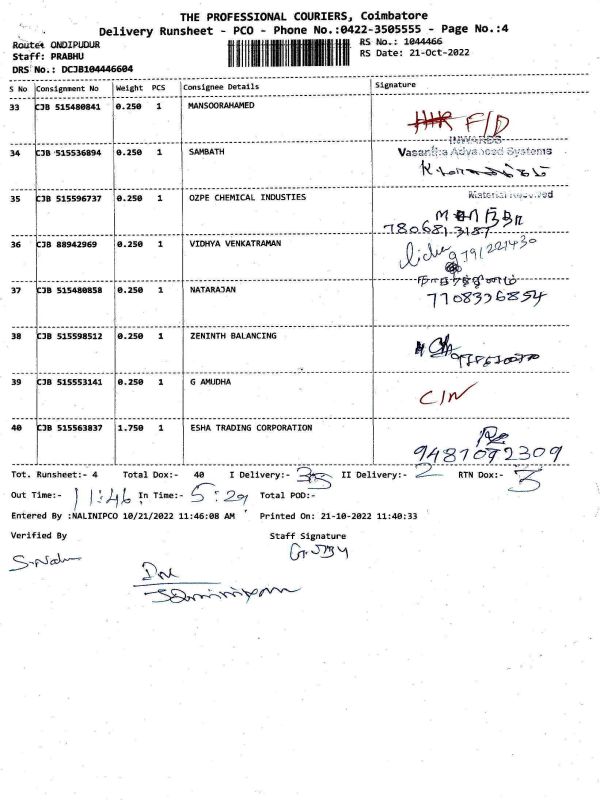 THE PROFESSIONAL COURIERS, Coimbatore
Delivery Runsheet - PCO - Phone No.:0422-3505555 - Page No.:4
Route: ONDIPUDUR
RS No.: 1044466
Staff: PRABHU
RS Date: 21-Oct-2022
DRS No.: DCJB104446604
S No Consignment No Weight PCS Consignee Details Signature
33 CJB 515480841 0.250 1 MANSOORAHAMED
F/D
INWARDS
34 CJB 515536894 0.250 1 SAMBATH Vasantha Advanced Systems
35 CJB 515596737 0.250 1 OZPE CHEMICAL INDUSTIES Material Received
7806813187
36 CJB 88942969 0.250 1 VIDHYA VENKATRAMAN
9791221430
37 CJB 515480858 0.250 1 NATARAJAN
7708336854
38 CJB 515598512 0.250 1 ZENINTH BALANCING
39 CJB 515553141 0.250 1 G AMUDHA
C/N
40 CJB 515563837 1.750 1 ESHA TRADING CORPORATION
9481092309
Tot. Runsheet:- 4 Total Dox:- 40 I Delivery:- 35 II Delivery:- 2 RTN Dox:- 3
Out Time:- 11:46 In Time:- 5:29 Total POD:-
Entered By :NALINIPCO 10/21/2022 11:46:08 AM Printed On: 21-10-2022 11:40:33
Verified By Staff Signature